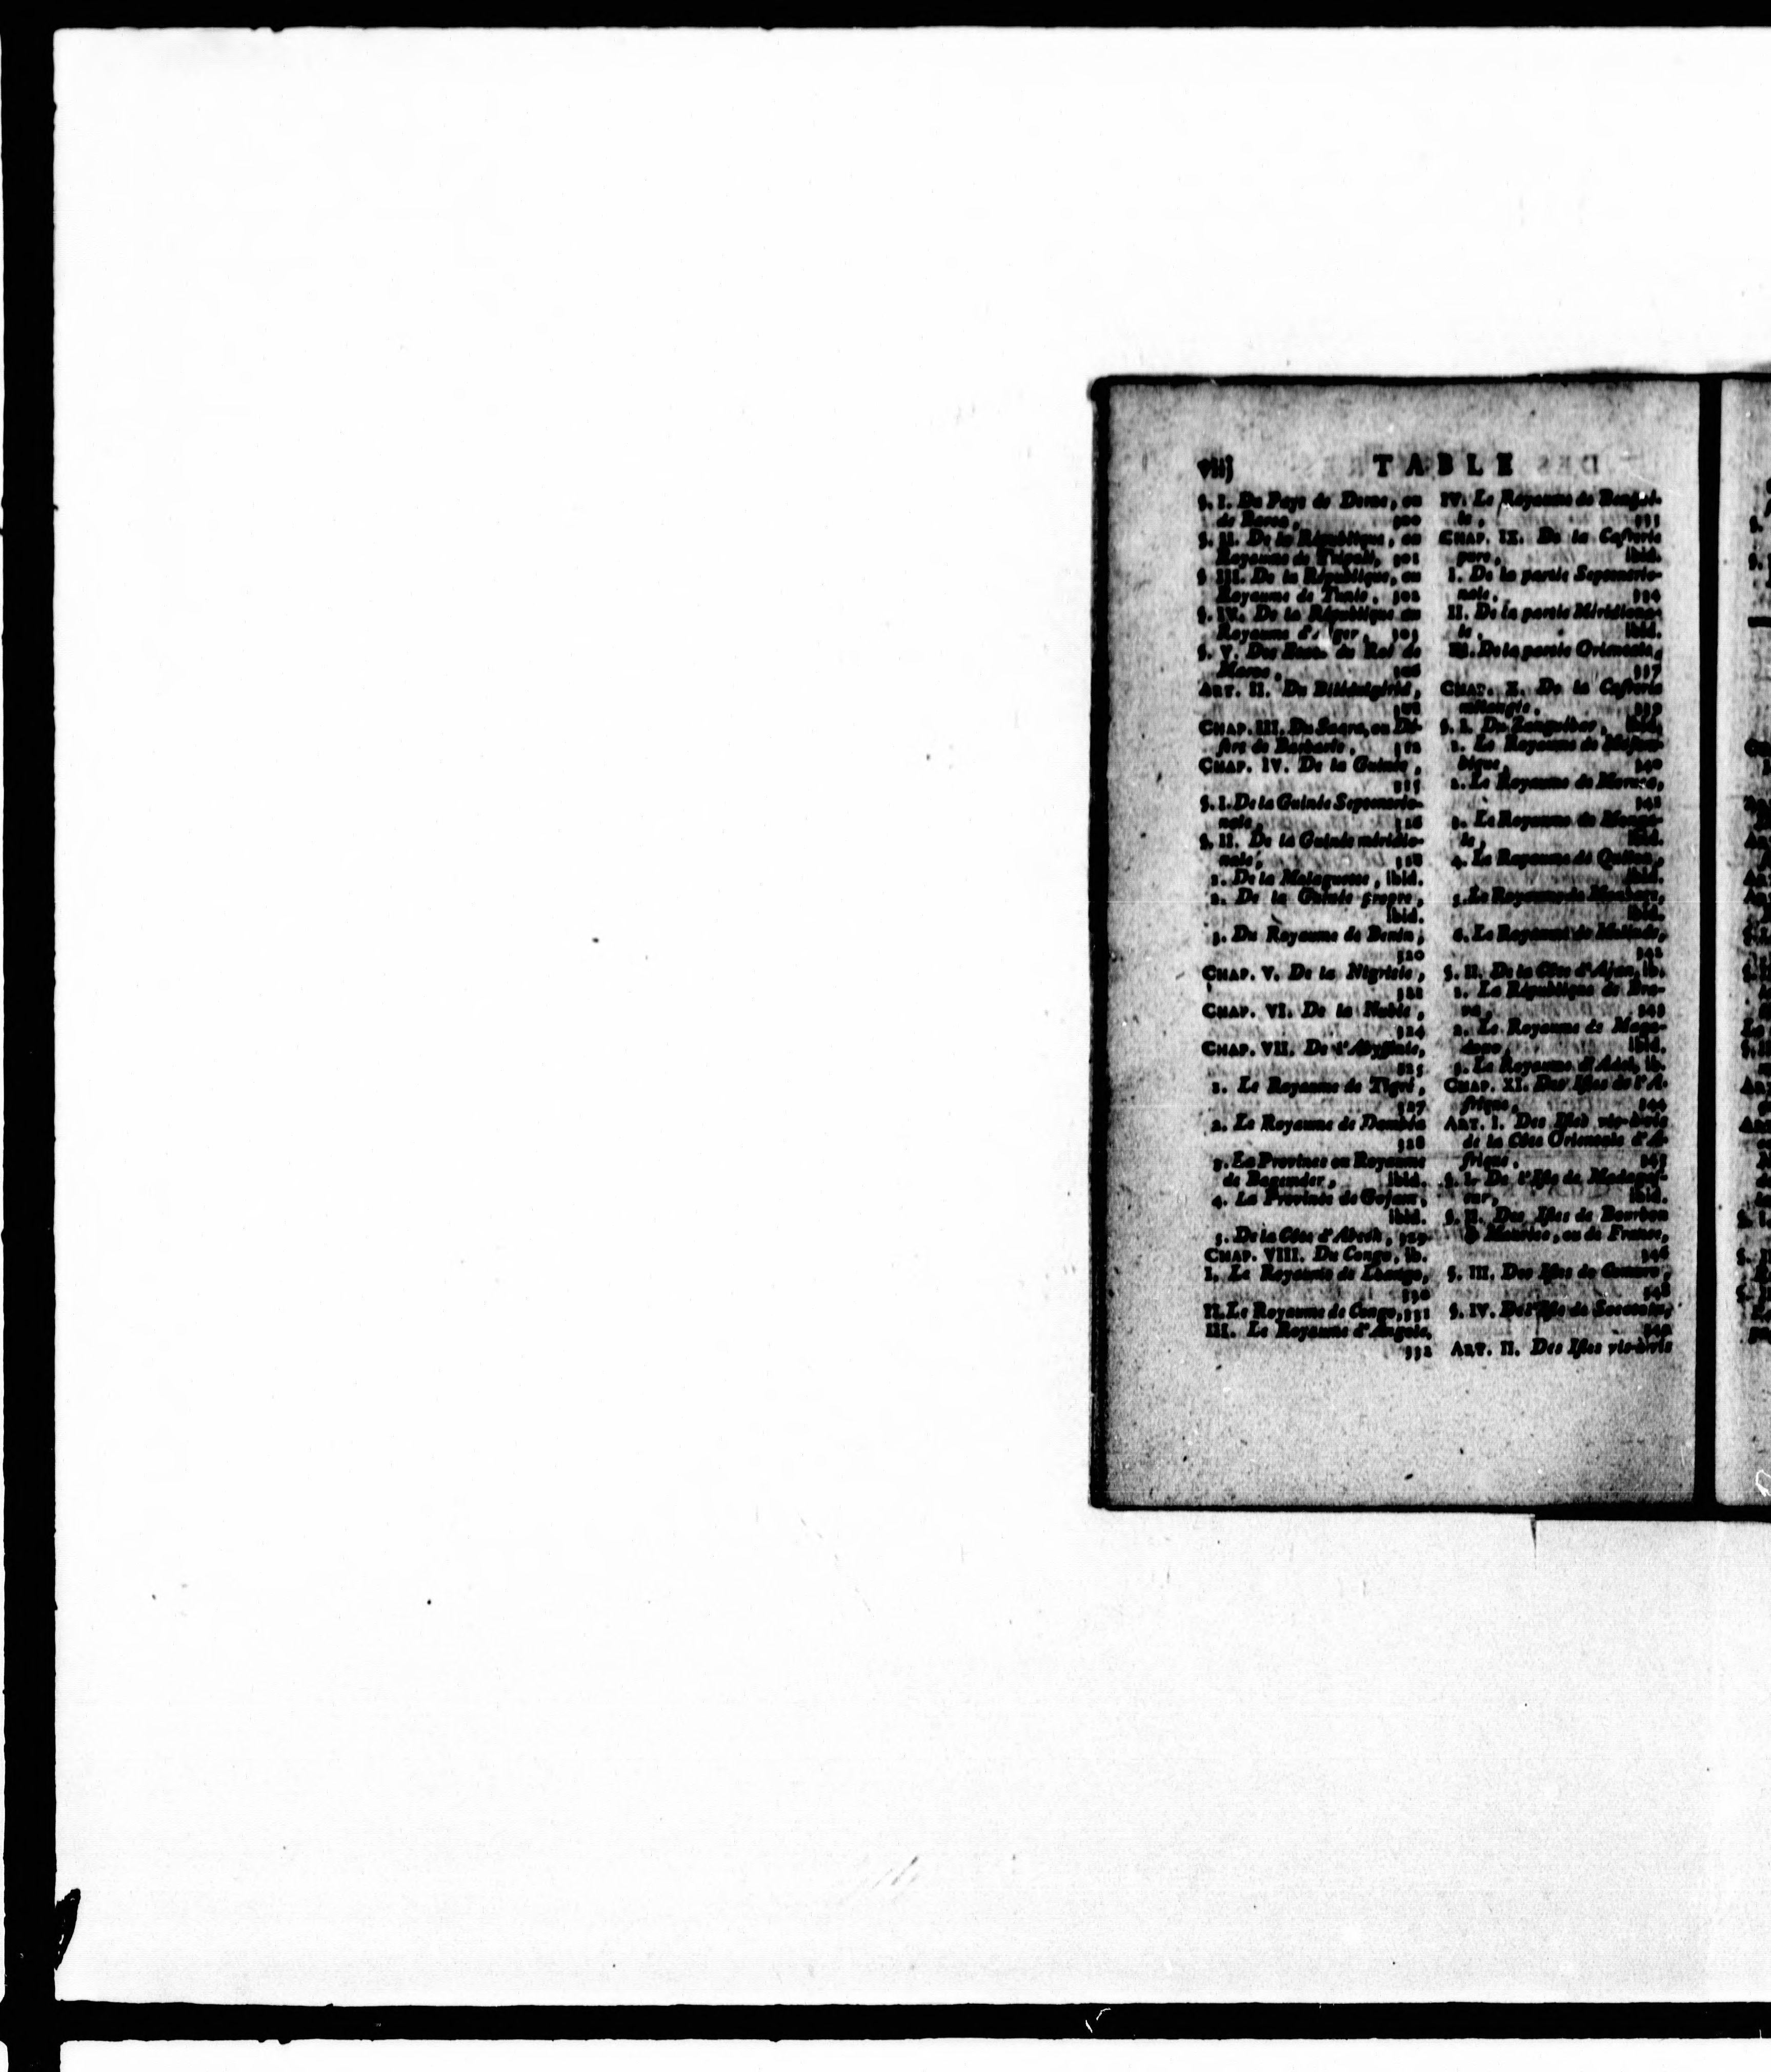 viij TABLE
§. I. Du Pays de Derne, ou
de Barca, 500
§. II. De la République, ou
Royaume de Tripoli, 501
§ III. De la République, ou
Royaume de Tunis, 502
§. IV. De la République ou
Royaume d'Alger, 503
§. V. Des Etats du Roi de
Maroc, 506
ART. II. Du Bilédulgérid,
CHAP. III. Du Saara, ou Dé-
sert de Barbarie, 512
CHAP. IV. De la Guinée,
515
§. I. De la Guinée Septentrio-
nale, 516
§. II. De la Guinée méridio-
nale, 518
1. De la Malaguette, ibid.
2. De la Guinée propre,
ibid.
3. Du Royaume de Benin,
520
CHAP. V. De la Nigritie,
522
CHAP. VI. De la Nubie,
524
CHAP. VII. De l'Abyssinie,
525
1. Le Royaume de Tigré,
527
2. Le Royaume de Dambéa
528
3. La Province ou Royaume
de Bagemder, ibid.
4. La Province de Gojam,
ibid.
5. De la Côte d'Abech, 529
CHAP. VIII. Du Congo, ib.
I. Le Royaume de Loango,
530
II. Le Royaume de Congo, 531
III. Le Royaume d'Angola,
532
IV. Le Royaume de Benguë-
la, 533
CHAP. IX. De la Cafrerie
pure, ibid.
I. De la partie Septentrio-
nale, 534
II. De la partie Méridiona-
le, ibid.
III. De la partie Orientale,
537
CHAP. X. De la Cafrerie
mélangée, 539
§. I. Du Zanguebar, ibid.
1. Le Royaume de Mosam-
bique, 540
2. Le Royaume de Moruca,
541
3. Le Royaume de Monga-
le, ibid.
4. Le Royaume de Quiloa,
ibid.
5. Le Royaume de Monbaze,
ibid.
6. Le Royaume de Melinde,
542
§. II. De la Côte d'Ajan, ib.
1. La République de Bra-
va, 543
2. Le Royaume de Maga-
doxo, ibid.
3. Le Royaume d'Adel, ib.
CHAP. XI. Des Isles de l'A-
frique, 544
ART. I. Des Isles vis-à-vis
de la Côte Orientale d'A-
frique, 545
§. I. De l'Isle de Madagas-
car, ibid.
§. II. Des Isles de Bourbon
& Maurice, ou de France,
546
§. III. Des Isles de Comore,
548
§. IV. De l'Isle de Socotora,
549
ART. II. Des Isles vis-à-vis